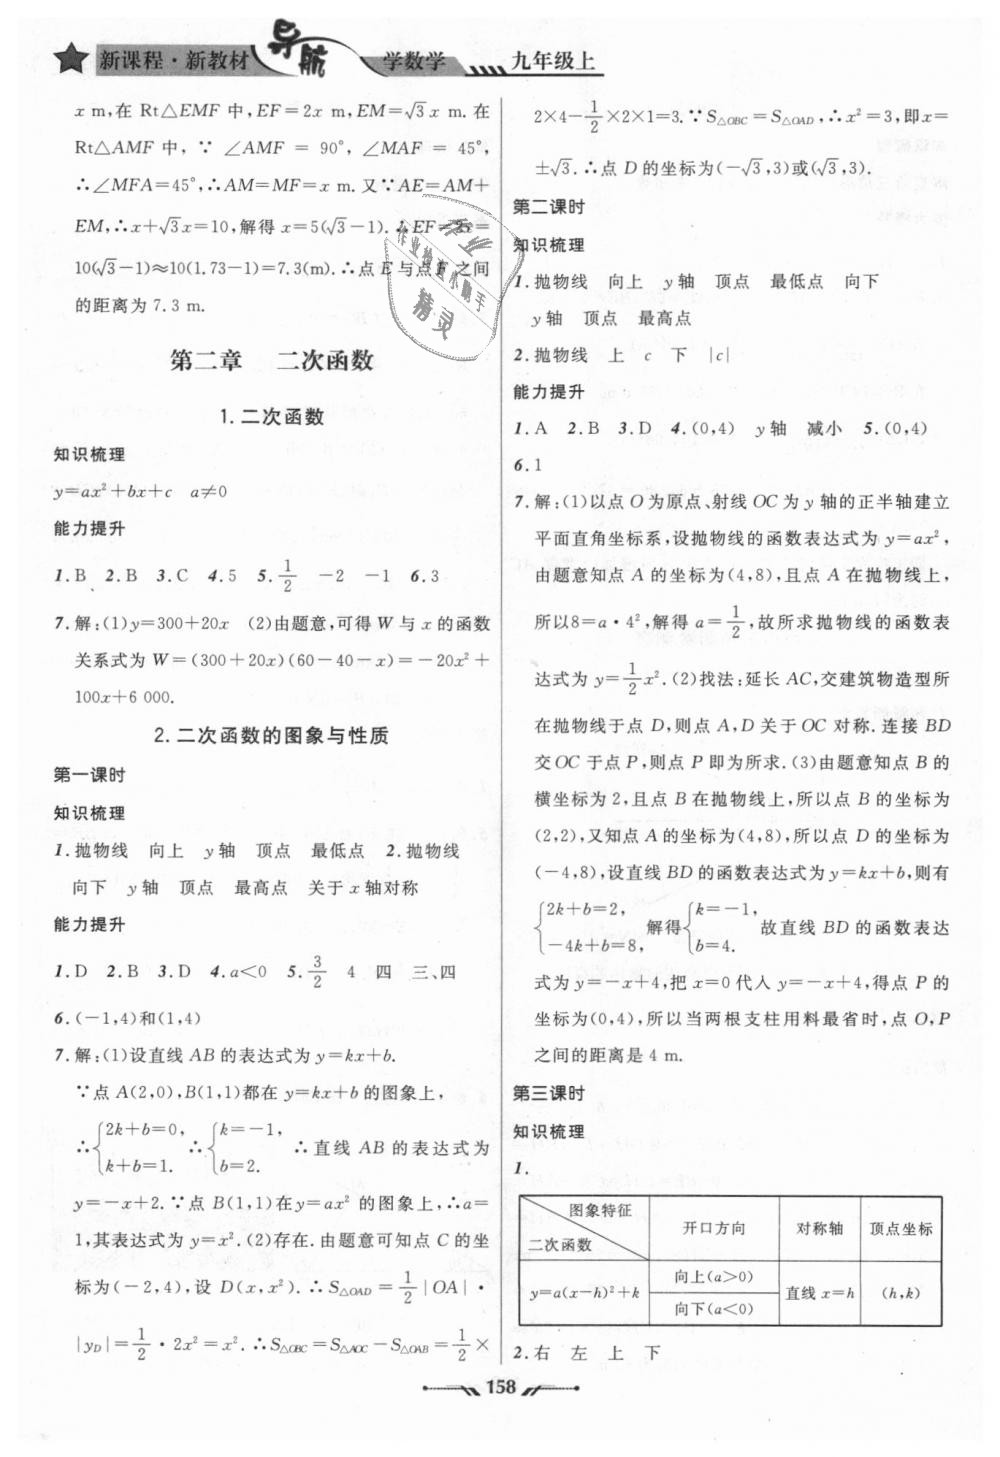 新课程·新教材 导航 学数学 九年级上
x m,在 Rt△EMF 中,EF=2x m,EM=√3x m.在
Rt△AMF 中, ∵ ∠AMF = 90°, ∠MAF = 45°,
∴∠MFA=45°,∴AM=MF=x m.又∵AE=AM+
EM,∴x+√3x=10,解得 x=5(√3-1).∴EF=2x=
10(√3-1)≈10(1.73-1)=7.3(m).∴点 E 与点 F 之间
的距离为 7.3 m.
第二章 二次函数
1.二次函数
知识梳理
y=ax²+bx+c a≠0
能力提升
1.B 2.B 3.C 4.5 5.1/2 -2 -1 6.3
7.解:(1)y=300+20x (2)由题意,可得 W 与 x 的函数
关系式为 W=(300+20x)(60-40-x)=-20x²+
100x+6 000.
2.二次函数的图象与性质
第一课时
知识梳理
1.抛物线 向上 y轴 顶点 最低点 2.抛物线
向下 y轴 顶点 最高点 关于 x 轴对称
能力提升
1.D 2.B 3.D 4.a<0 5.3/2 4 四 三、四
6.(-1,4)和(1,4)
7.解:(1)设直线 AB 的表达式为 y=kx+b.
∵点 A(2,0),B(1,1)都在 y=kx+b 的图象上,
∴{2k+b=0, k+b=1. ∴{k=-1, b=2. ∴直线 AB 的表达式为
y=-x+2.∵点 B(1,1)在 y=ax² 的图象上,∴a=
1,其表达式为 y=x².(2)存在.由题意可知点 C 的坐
标为(-2,4),设 D(x,x²).∴S△OAD=1/2|OA|·
|yD|=1/2·2x²=x².∴S△OBC=S△AOC-S△OAB=1/2×
2×4-1/2×2×1=3.∵S△OBC=S△OAD,∴x²=3,即x=
±√3.∴点 D 的坐标为(-√3,3)或(√3,3).
第二课时
知识梳理
1.抛物线 向上 y轴 顶点 最低点 向下
y轴 顶点 最高点
2.抛物线 上 c 下 |c|
能力提升
1.A 2.B 3.D 4.(0,4) y轴 减小 5.(0,4)
6.1
7.解:(1)以点 O 为原点、射线 OC 为 y 轴的正半轴建立
平面直角坐标系,设抛物线的函数表达式为 y=ax²,
由题意知点 A 的坐标为(4,8),且点 A 在抛物线上,
所以8=a·4²,解得 a=1/2,故所求抛物线的函数表
达式为 y=1/2x².(2)找法:延长 AC,交建筑物造型所
在抛物线于点 D,则点 A,D 关于 OC 对称.连接 BD
交 OC 于点 P,则点 P 即为所求.(3)由题意知点 B 的
横坐标为 2,且点 B 在抛物线上,所以点 B 的坐标为
(2,2),又知点 A 的坐标为(4,8),所以点 D 的坐标为
(-4,8),设直线 BD 的函数表达式为 y=kx+b,则有
{2k+b=2, -4k+b=8, 解得{k=-1, b=4. 故直线 BD 的函数表达
式为 y=-x+4,把 x=0 代人 y=-x+4,得点 P 的
坐标为(0,4),所以当两根支柱用料最省时,点 O,P
之间的距离是 4 m.
第三课时
知识梳理
1.
图象特征 二次函数 开口方向 对称轴 顶点坐标
y=a(x-h)²+k 向上(a>0) 向下(a<0) 直线 x=h (h,k)
2.右 左 上 下
158
作业
作业检查小助手
精灵